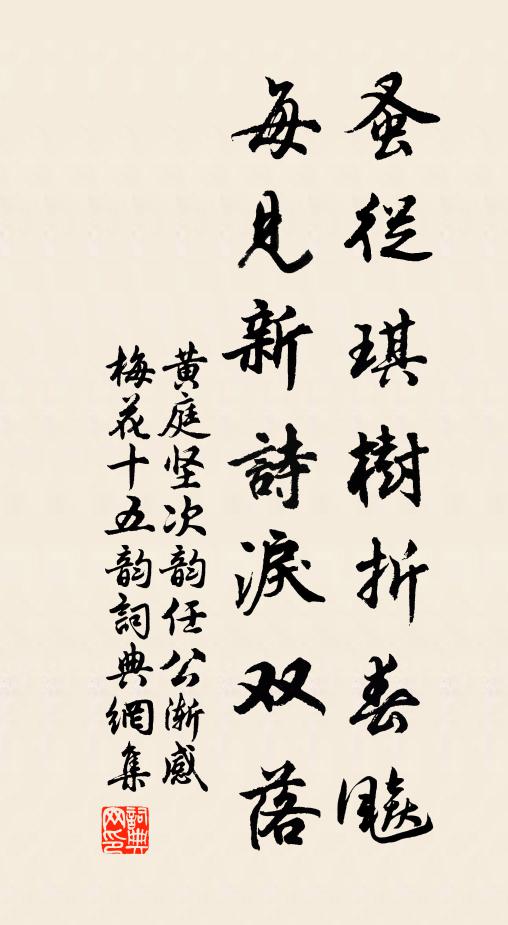 蚤從琪樹折春飈
每見新詩淚双落
黄庭坚次韵任公渐感
梅花十五韵詞典網集
詞典网印